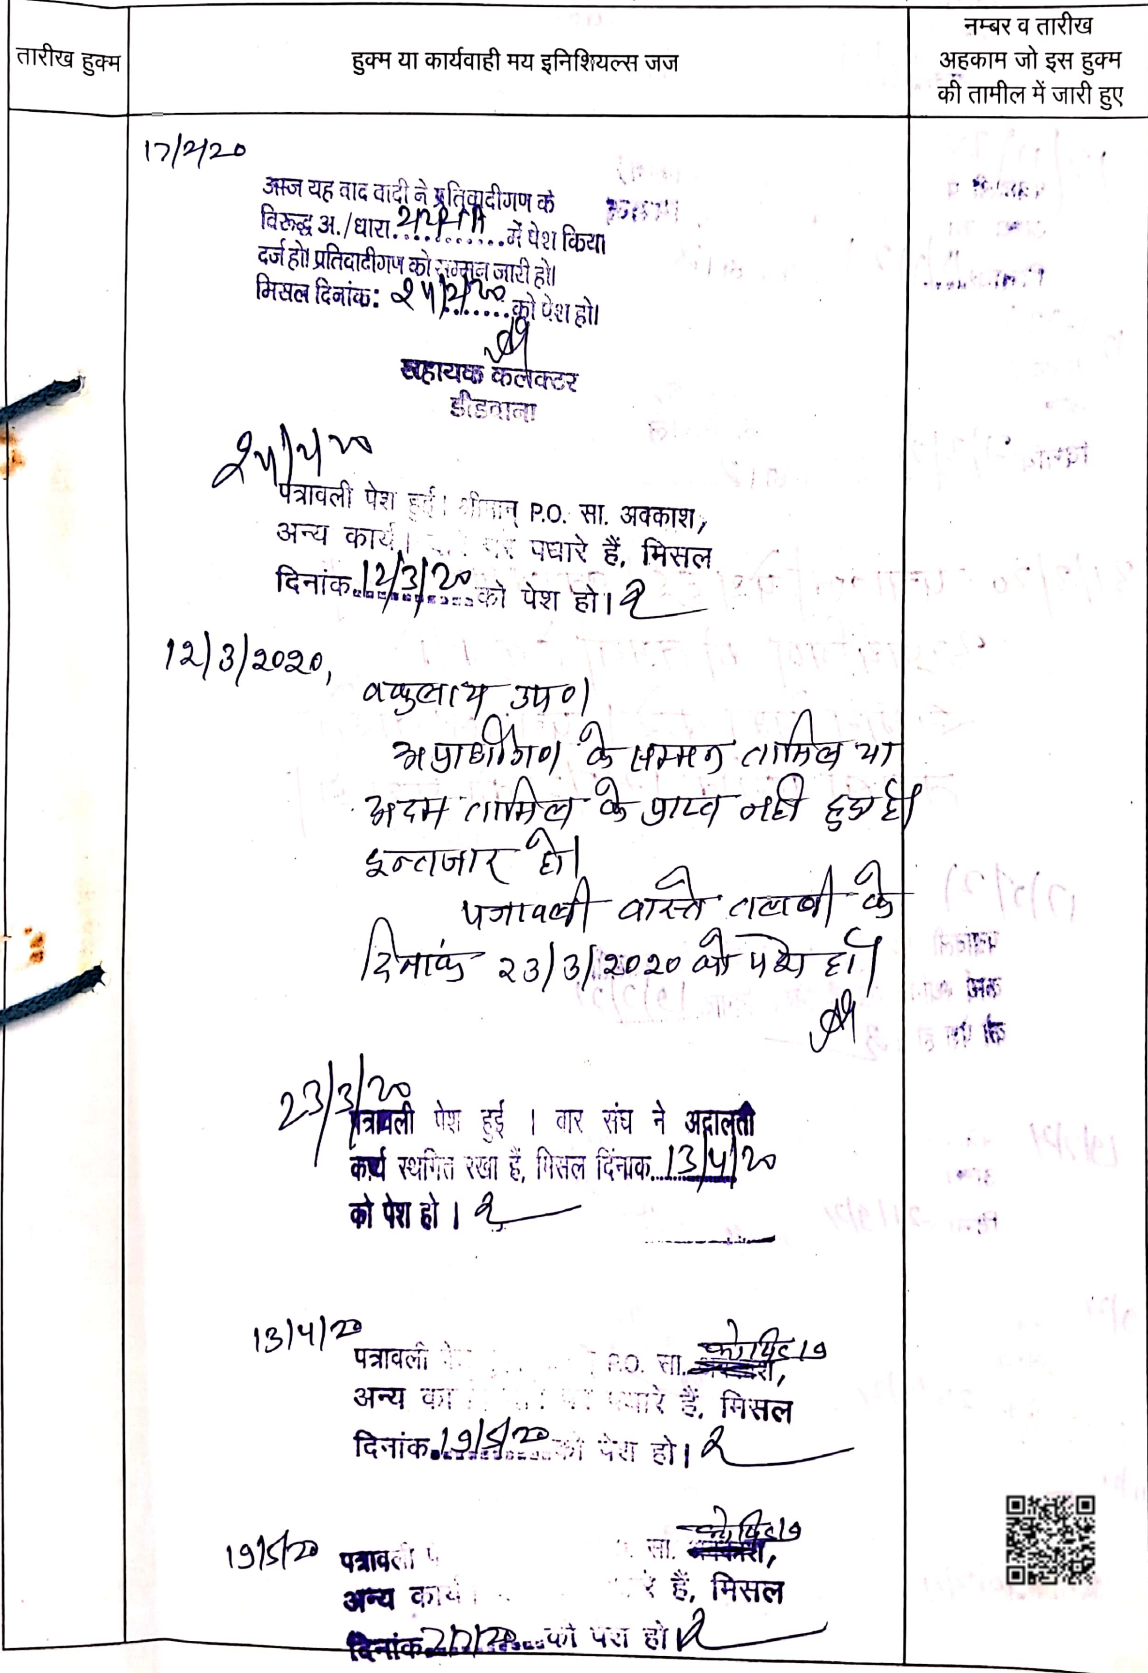 तारीख हुक्म
हुक्म या कार्यवाही मय इनिशियल्स जज
नम्बर व तारीख
अहकाम जो इस हुक्म
की तामील में जारी हुए
17/2/20
आज यह वाद वादी ने प्रतिवादीगण के
विरूद्ध अ./धारा............में पेश किया
दर्ज हो। प्रतिवादीगण को सम्मन जारी हो।
मिसल दिनांक: 24/2/20 को पेश हो।
सहायक कलेक्टर
डीडवाना
24/2/20
पत्रावली पेश हुई। श्रीमान् P.O. सा. अवकाश,
अन्य कार्य पर पधारे हैं, मिसल
दिनांक 12/3/20 को पेश हो।
12/3/2020,
वकुलाय उप०।
अप्रार्थीगण के सम्मन तामिल या
अदम तामिल के प्राप्त नही हुआ है।
इन्तजार हो।
पत्रावली वास्ते तलबी के
दिनांक 23/3/2020 को पेश हो।
23/3/20
पत्रावली पेश हुई । वार संघ ने अदालती
कार्य स्थगित रखा हैं, मिसल दिंनाक 13/4/20
को पेश हो ।
13/4/20
पत्रावली P.O. सा. कोविड 19
अन्य का पधारे हैं, मिसल
दिनांक 19/5/20 को पेश हो।
19/5/20
पत्रावली सा. कोविड 19
अन्य कार्य रे हैं, मिसल
दिनांक 2/7/20 को पेश हो।